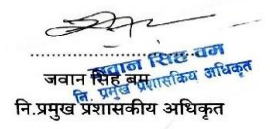 ........................................
जवान सिंह बम
नि. प्रमुख प्रशासकिय अधिकृत
जवान सिंह बम
नि.प्रमुख प्रशासकीय अधिकृत